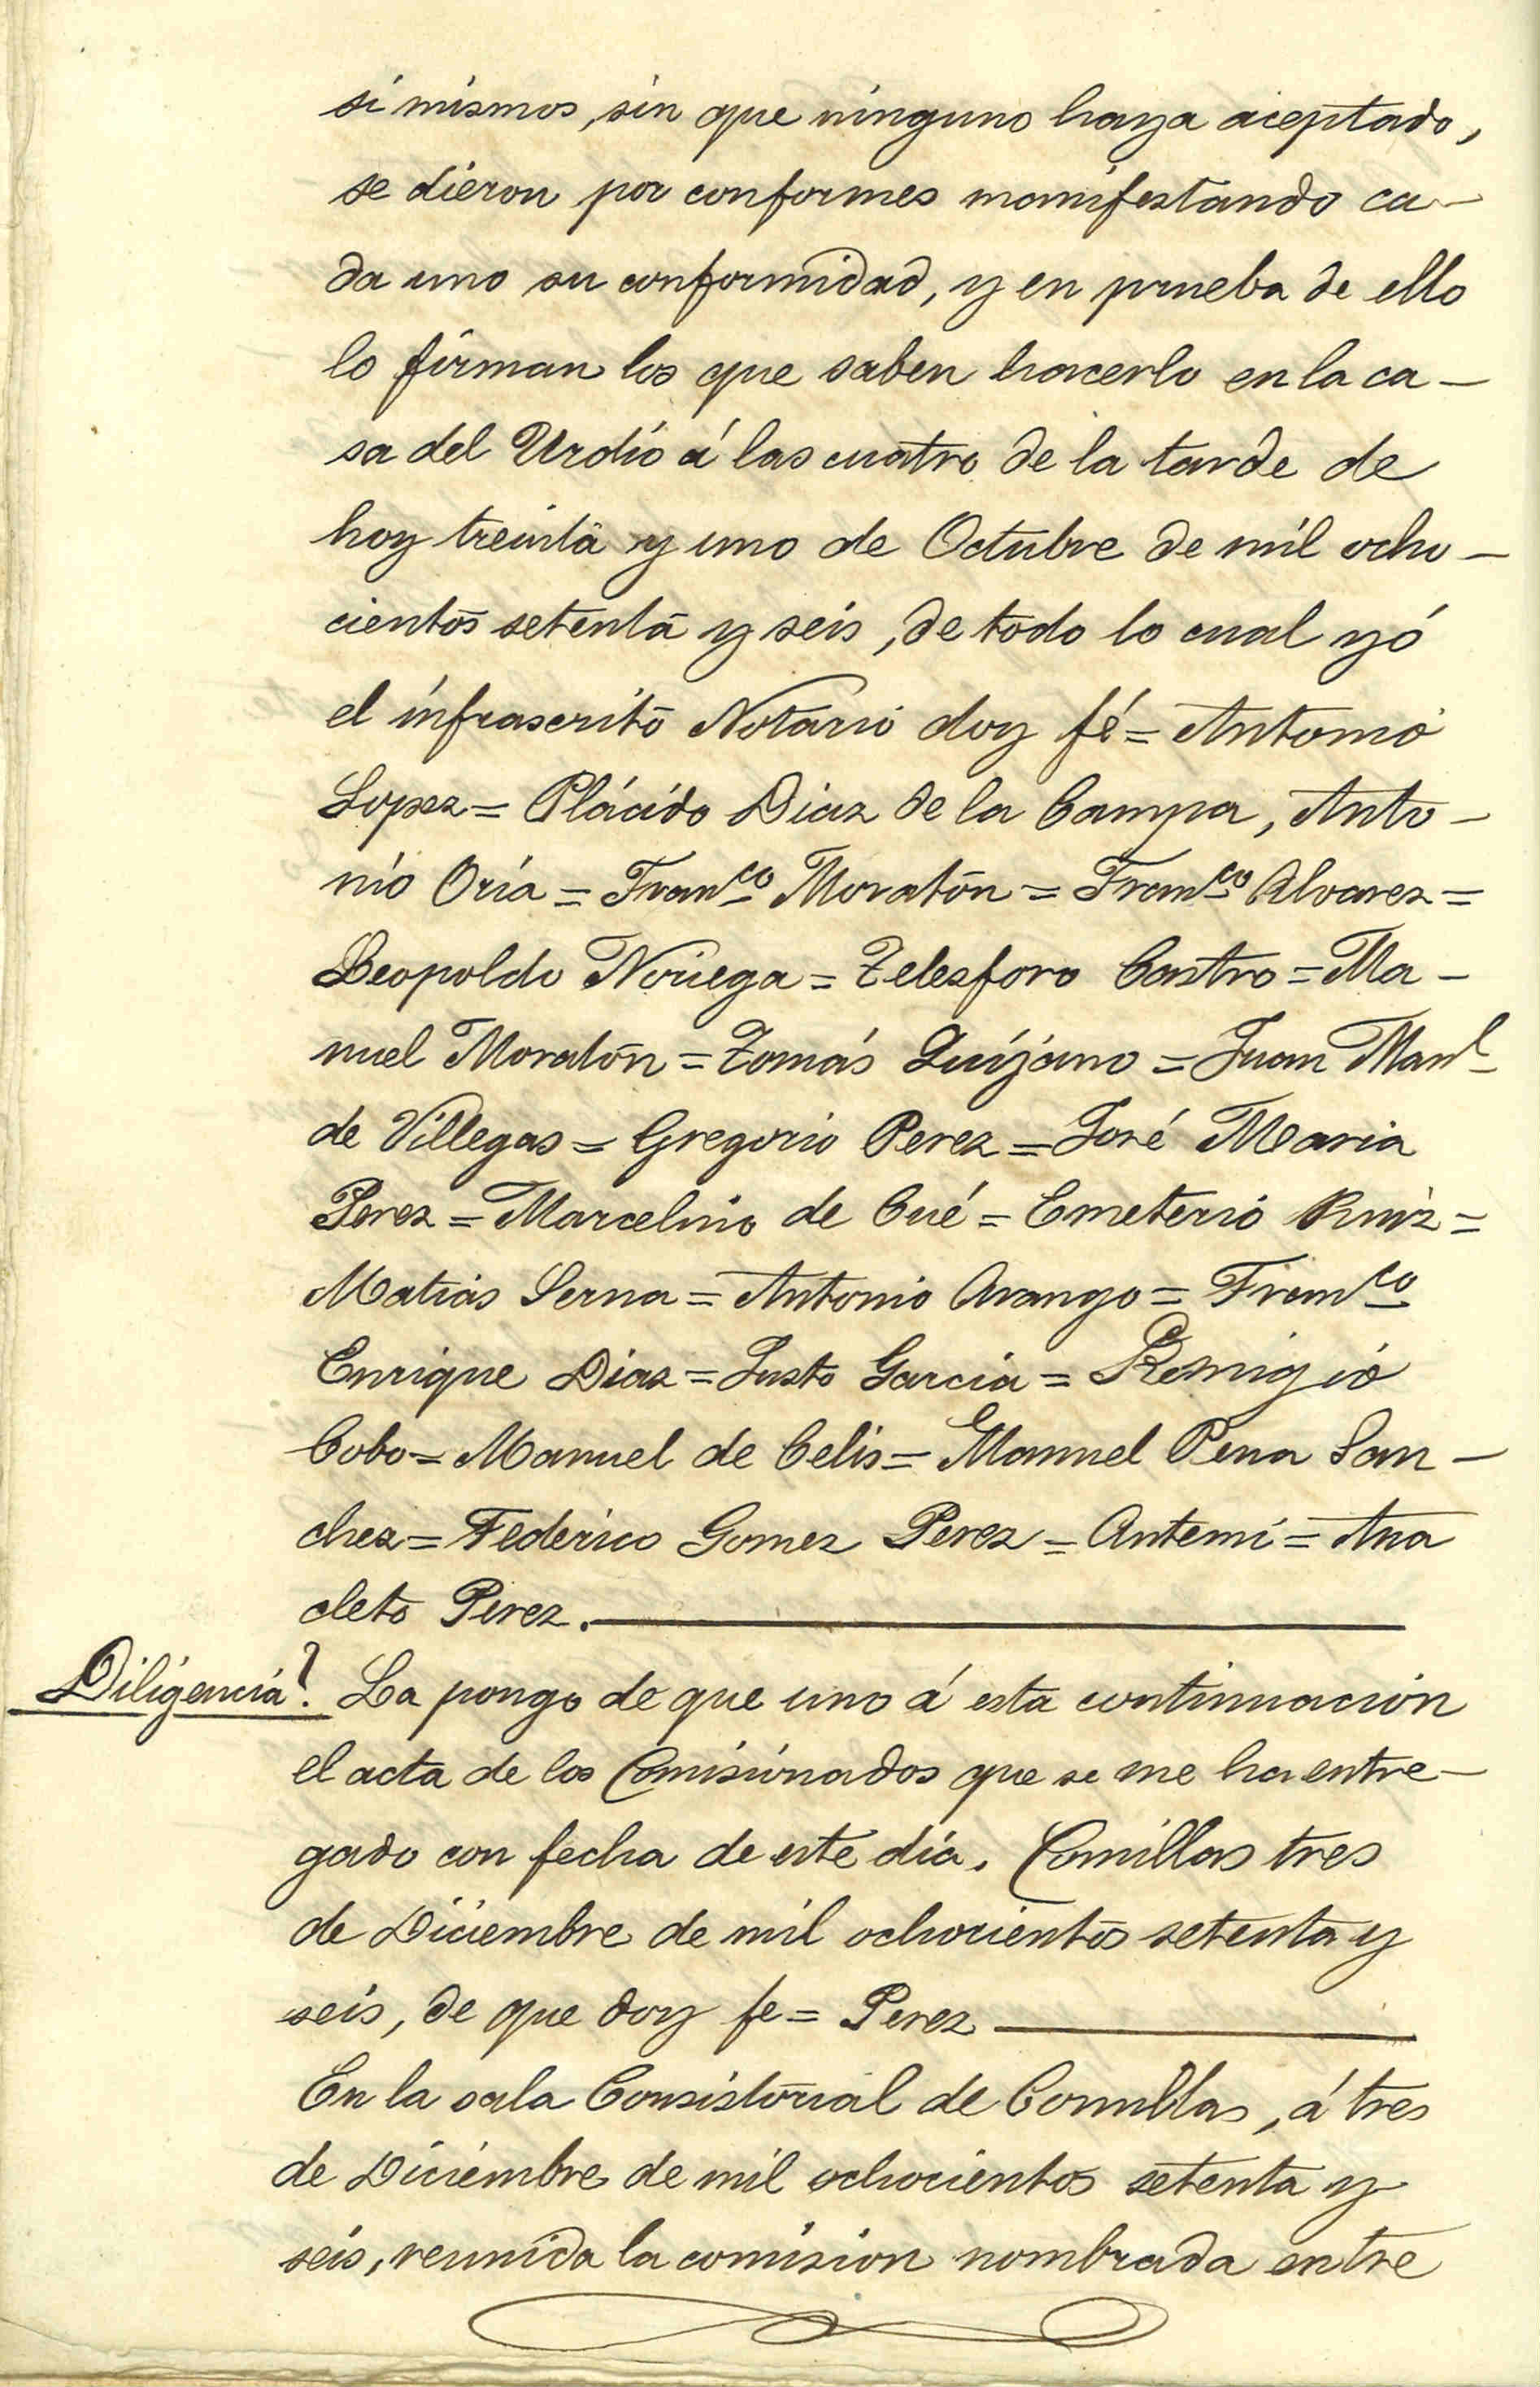 si mismos, sin que ninguno haya aceptado,
se dieron por conformes manifestando ca-
da uno su conformidad, y en prueba de ello
lo firman los que saben hacerlo en la ca-
sa del Urdío á las cuatro de la tarde de
hoy treinta y uno de Octubre de mil ocho-
cientos setenta y seis, de todo lo cual yó
el infrascrito Notario doy fé = Antonio
Lopez = Plácido Diaz de la Campa, Anto-
nio Oría = Franco Moratón = Franco Alvarez =
Leopoldo Noriega = Telesforo Castro = Ma-
nuel Moratón = Tomás Quijano = Juan Manl
de Villegas = Gregorio Perez = José Maria
Perez = Marcelino de Cué = Emeterio Ruiz =
Matias Serna = Antonio Arango = Franco
Enrique Diaz = Justo Garcia = Remigio
Cobo = Manuel de Celis = Manuel Pena San-
chez = Federico Gomez Perez = Antemi = Ana
cleto Perez.
Diligencia. La pongo de que uno á esta continuacion
el acta de los Comisionados que se me ha entre-
gado con fecha de este dia. Comillas tres
de Diciembre de mil ochocientos setenta y
seis, de que doy fe = Perez
En la sala Consistorial de Comillas, á tres
de Diciembre de mil ochocientos setenta y
seis, reunida la comision nombrada entre